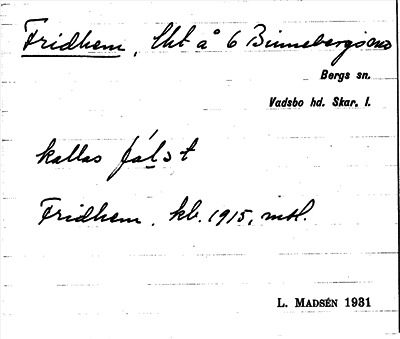 Fridhem, lht å 6 Binnebergs
Bergs sn.
Vadsbo hd. Skar. l.
kallas jálst
Fridhem. kb. 1915, mtl.
L. MADSÉN 1931